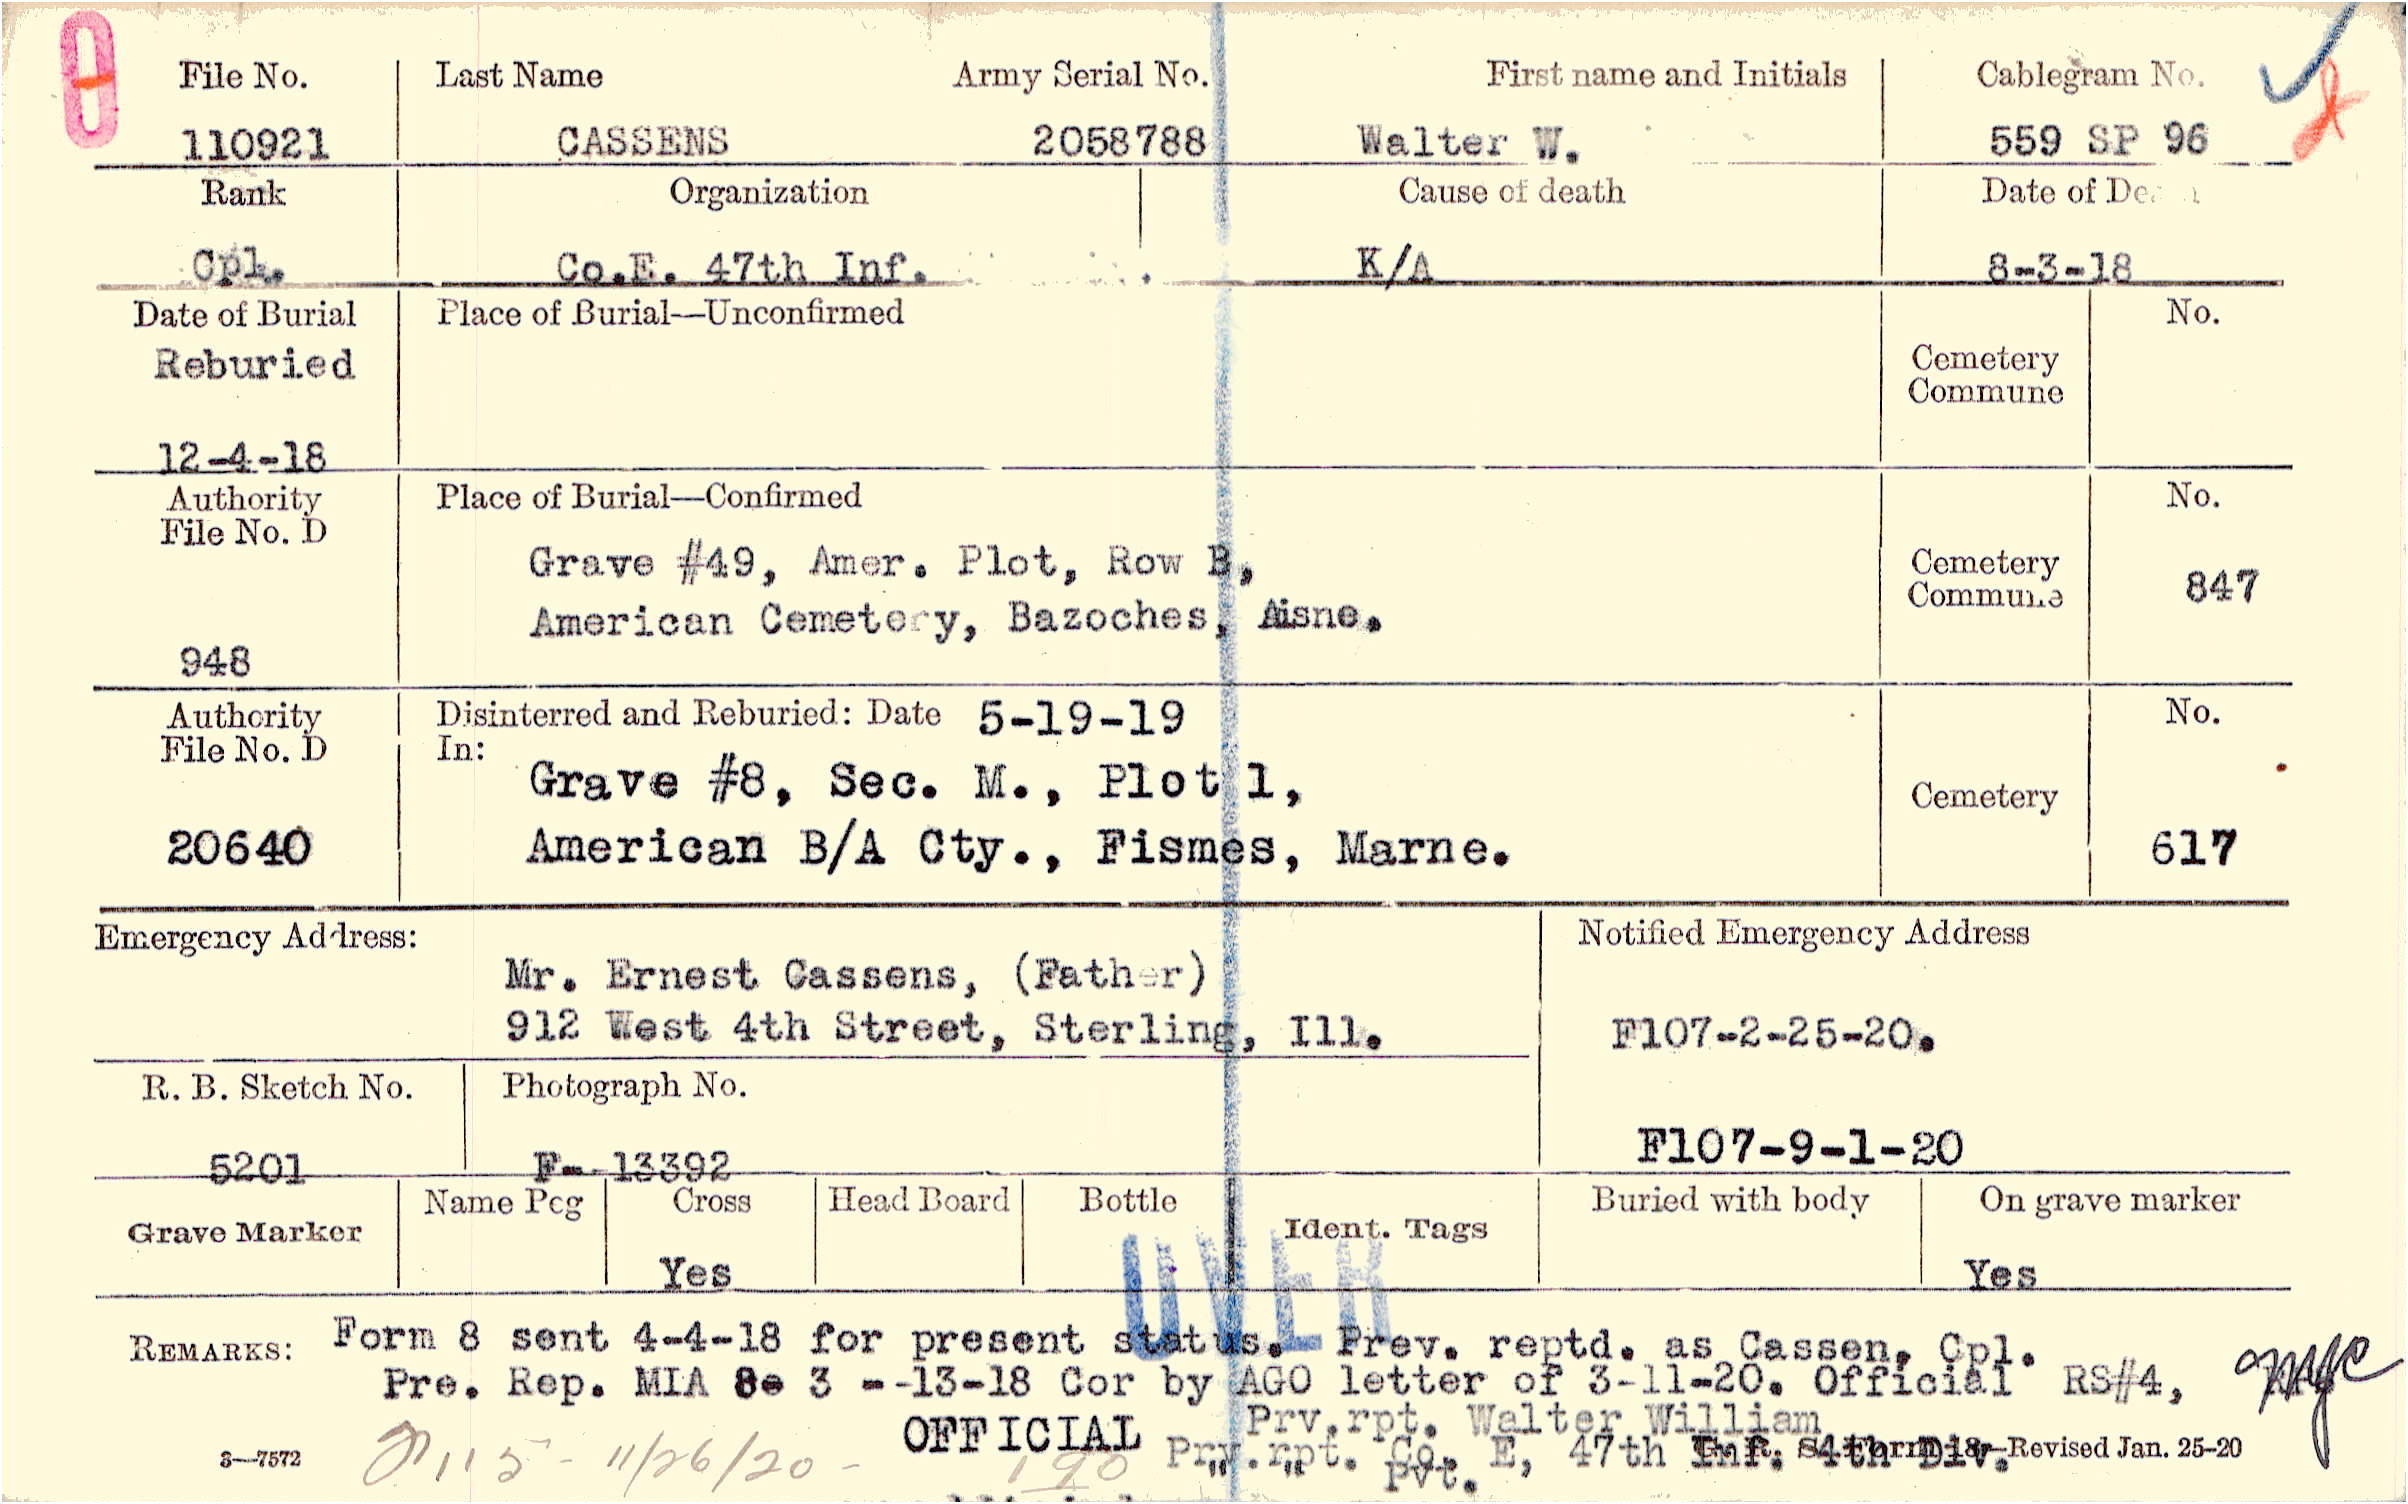 File No. Last Name Army Serial No. First name and Initials Cablegram No.
110921 CASSENS 2058788 Walter W. 559 SP 96
Rank Organization Cause of death Date of De
Cpl. Co.E. 47th Inf. K/A 8-3-18
Date of Burial Place of Burial—Unconfirmed No.
Reburied Cemetery
Commune
12-4-18
Authority Place of Burial—Confirmed No.
File No. D
Grave #49, Amer. Plot, Row B, Cemetery
American Cemetery, Bazoches, Aisne. Commune 847
948
Authority Disinterred and Reburied: Date 5-19-19 No.
File No. D In:
Grave #8, Sec. M., Plot 1, Cemetery
20640 American B/A Cty., Fismes, Marne. 617
Emergency Address: Notified Emergency Address
Mr. Ernest Cassens, (Father)
912 West 4th Street, Sterling, Ill. F107-2-25-20.
R. B. Sketch No. Photograph No.
5201 F--13392 F107-9-1-20
Grave Marker Name Peg Cross Head Board Bottle Ident. Tags Buried with body On grave marker
Yes Yes
OVER
REMARKS: Form 8 sent 4-4-18 for present status. Prev. reptd. as Cassen, Cpl.
Pre. Rep. MIA 3 --13-18 Cor by AGO letter of 3-11-20. Official RS#4,
OFFICIAL Prv.rpt. Walter William
Prv.rpt. Co. E, 47th Inf. 4th Div.
" " Pvt.
3—7572 115 - 11/26/20 - G. R. S. Form 18—Revised Jan. 25-20